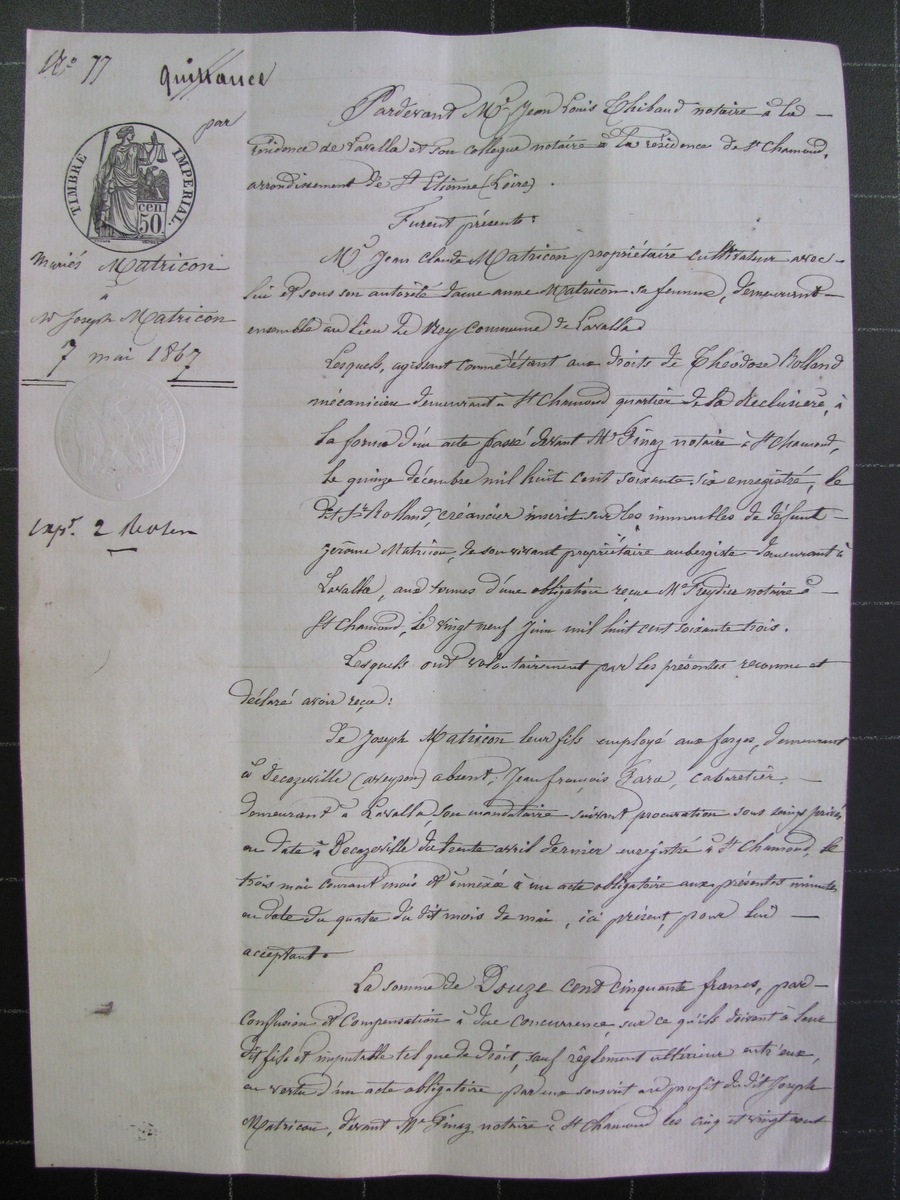 No 77
quittance
par
TIMBRE IMPERIAL
cen. 50.
Mariés Matricon
à
Jo Joseph Matricon
7 mai 1867
Expt. 2 Roles
Pardevant Me. Jean Louis Thibaud notaire à la
résidence de Lavalla et son collegue notaire à la résidence de St Chamond,
arrondissement de St Etienne (Loire).
Furent présents:
Mr. Jean Claude Matricon propriétaire cultivateur avec
lui et sous son autorité dame anne Matricon sa femme, demeurant
ensemble au lieu de Rey commune de Lavalla
Lesquels, agissant comme étant aux droits de Théodose Rolland
mecanicien demeurant à St Chamond quartier de la Reclusière, à
la forme d'un acte passé devant Me Finaz notaire à St Chamond,
le quinze décembre mil huit cent soixante six enregistré, le
dit Sr. Rolland, créancier inscrit sur les immeubles de défunt
gérome Matricon, de son vivant propriétaire aubergiste demeurant à
Lavalla, aux termes d'une obligation reçue Me Freydier notaire à
St Chamond, le vingt neuf Juin mil huit cent soixante trois.
Lesquels ont volontairement par les présentes reconnu et
déclaré avoir reçu:
De Joseph Matricon leur fils employé aux forges, demeurant
à Decazeville (aveyron) absent, Jean françois Fara, cabaretier
demeurant à Lavalla, son mandataire suivant procuration sous seings privés
en date à Decazeville du trente avril dernier enregistré à St Chamond, le
trois mai courant mois et annéxé à un acte obligatoire aux présentes minutes
en date du quatre du dit mois de mai, ici présent, pour lui
acceptant.
La somme de Douze cent cinquante francs, par
Confusion et Compensation à due concurrence, sur ce qu'ils doivent à leur
dit fils et imputable tel que de droit, sauf règlement ultérieur entr'eux,
en vertu d'un acte obligatoire par eux souscrit au profit du dit Joseph
Matricon, devant Me Finaz notaire à St Chamond les cinq et vingt aout